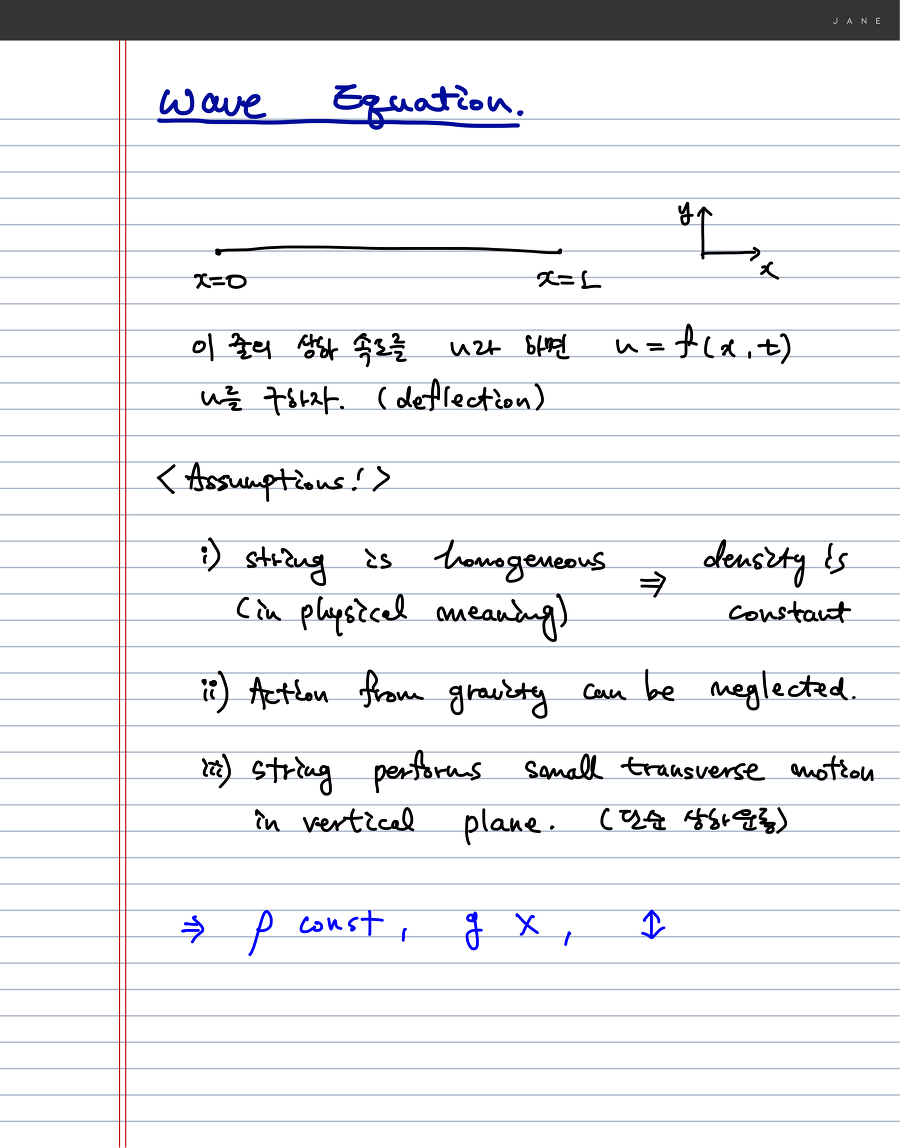 JANE
Wave Equation.
y
x
x=0 x=L
이 줄의 상하 속도를 u라 하면 u = f(x,t)
u를 구하자. (deflection)
<Assumptions!>
i) string is homogeneous ⇒ density is
(in physical meaning) constant
ii) Action from gravity can be neglected.
iii) string performs small transverse motion
in vertical plane. (단순 상하운동)
⇒ ρ const, g X, ↕